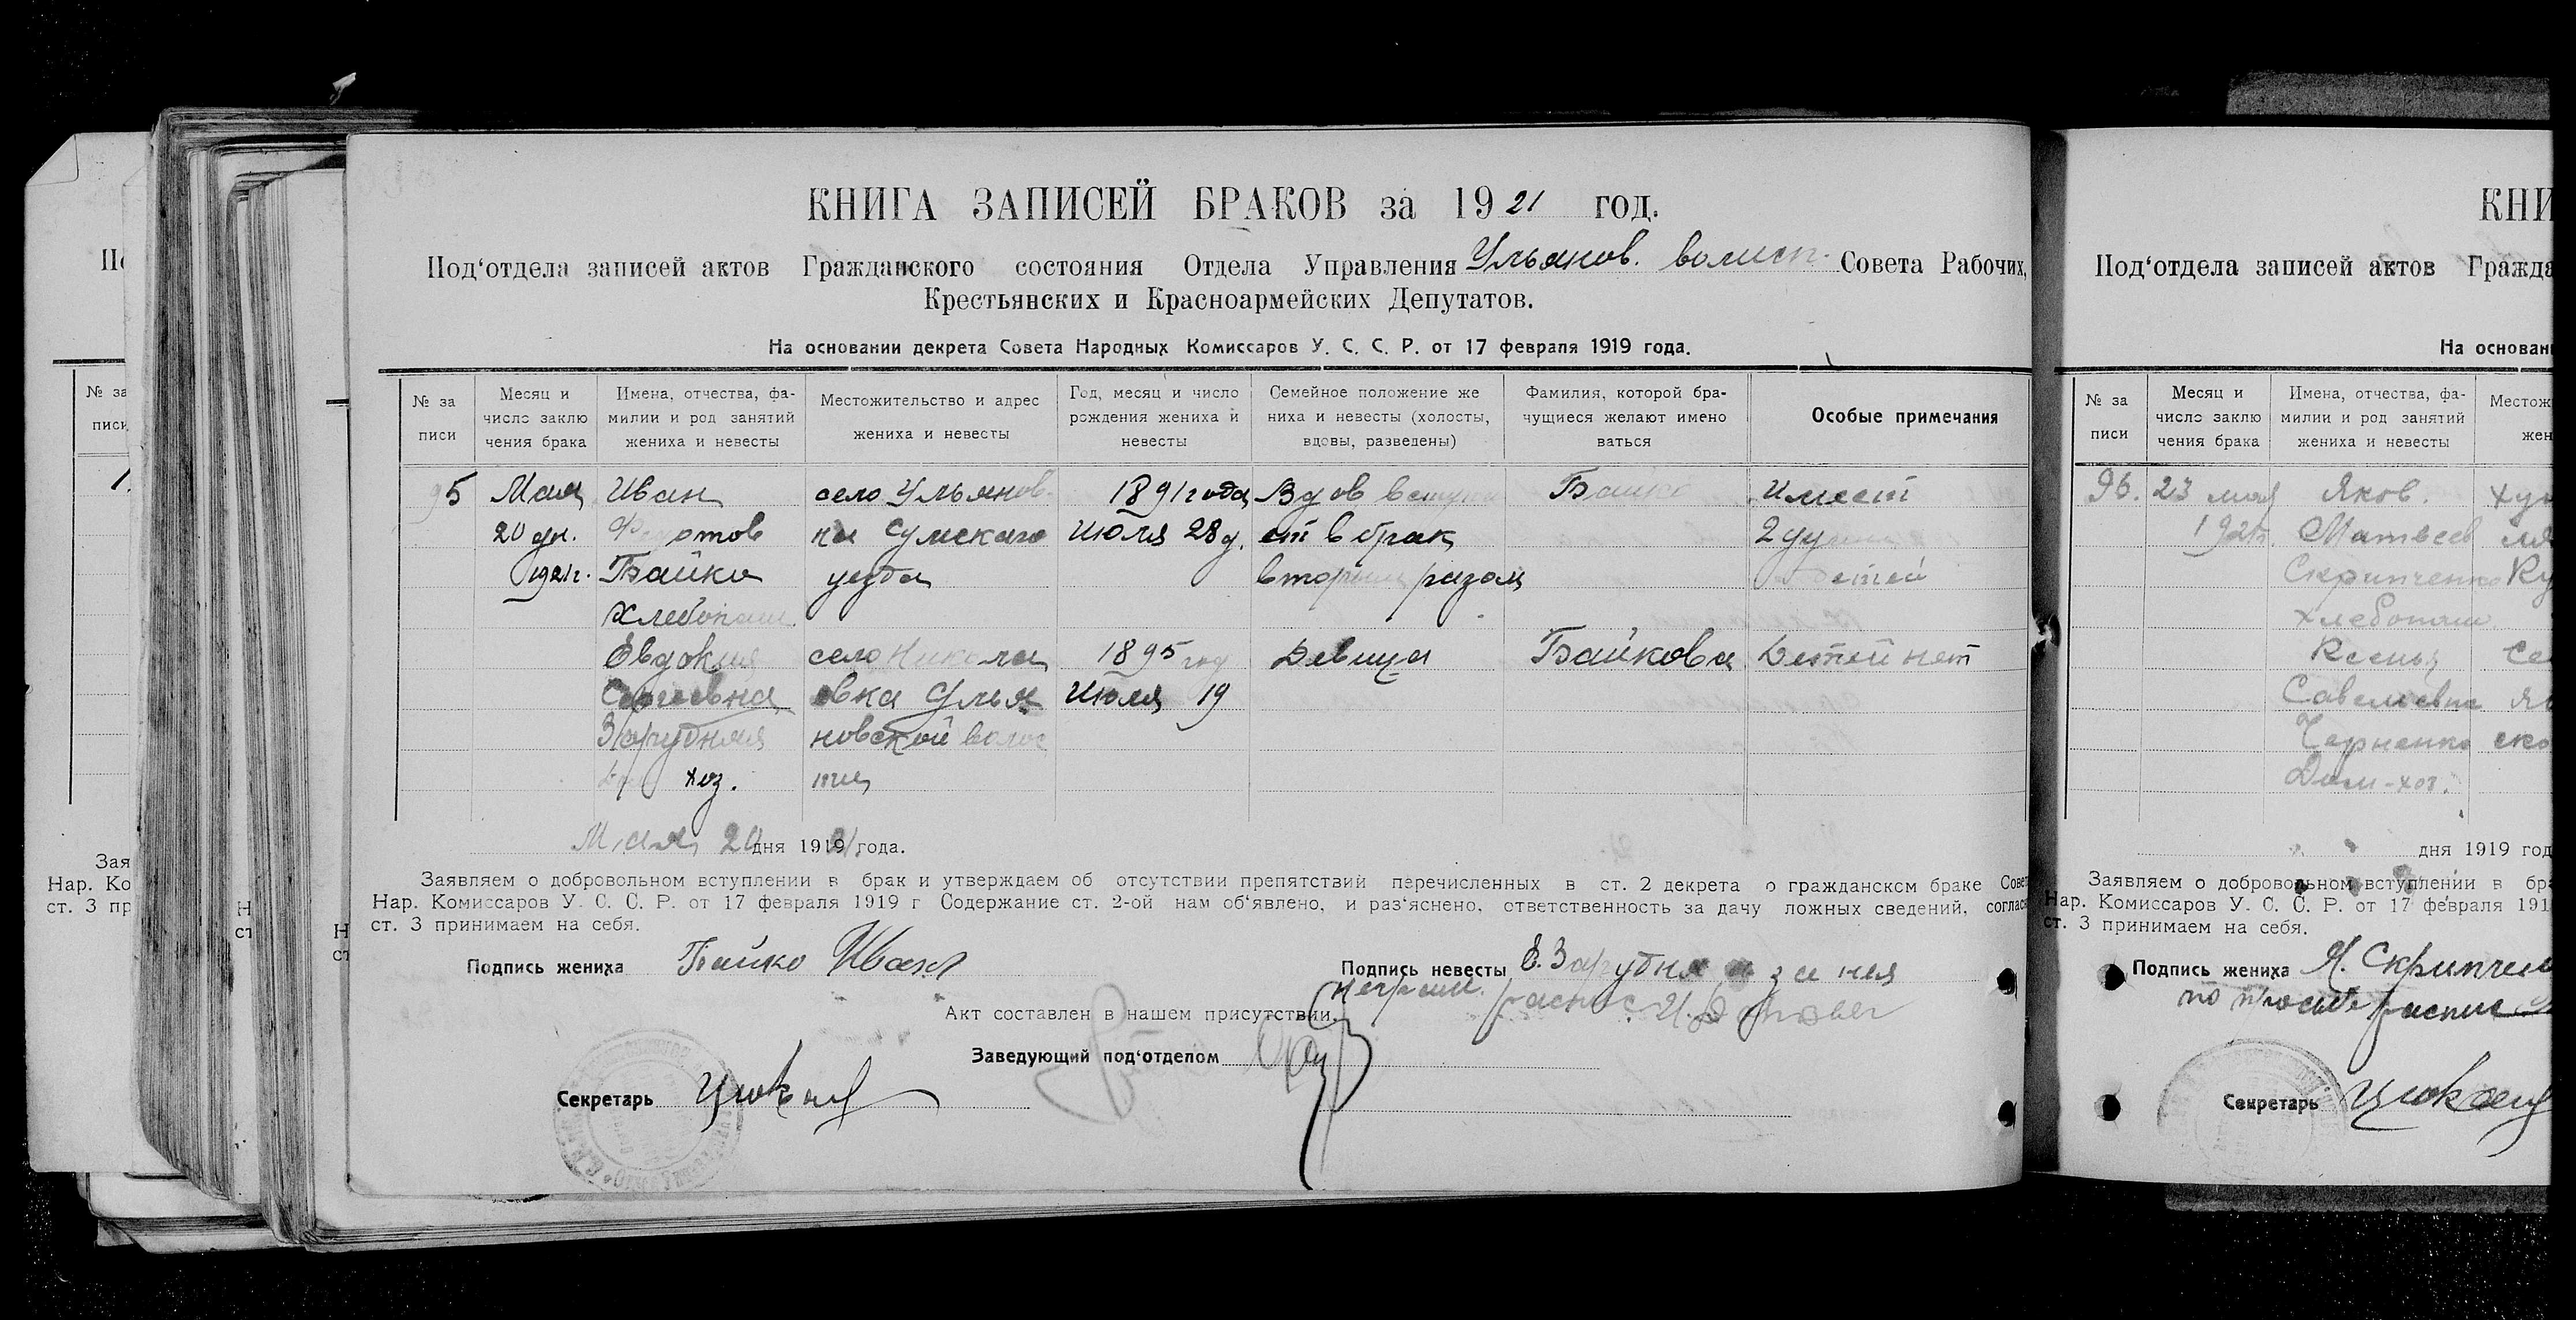 КНИГА ЗАПИСЕЙ БРАКОВ за 1921 год.
Под‘отдела записей актов Гражданского состояния Отдела Управления Ульянов. волисп. Совета Рабочих,
Крестьянских и Красноармейских Депутатов.
На основании декрета Совета Народных Комиссаров У. С. С. Р. от 17 февраля 1919 года.
№ за
писи
Месяц и
число заклю
чения брака
Имена, отчества, фа-
милии и род занятий
жениха и невесты
Местожительство и адрес
жениха и невесты
Год, месяц и число
рождения жениха и
невесты
Семейное положение же
ниха и невесты (холосты,
вдовы, разведены)
Фамилия, которой бра-
чущиеся желают имено
ваться
Особые примечания
95
Мая
20 дн.
1921г.
Иван
Байко
хлебопаш.
село Ульянов-
ка Сумского
уезда
1891 года
Июля 28 д.
Вдов вступа
ет в брак
вторым разом
Байко
Имеет
2 души
детей
Евдокия
Сергеевна
Зарудняя
хоз.
село Никола
евка Улья
новской волос
тии
1895 год
Июля 19
Девица
Байкова
Детей нет
Мая 20 дня 1921 года.
Заявляем о добровольном вступлении в брак и утверждаем об отсутствии препятствий перечисленных в ст. 2 декрета о гражданском браке Совет
Нар. Комиссаров У. С. С. Р. от 17 февраля 1919 г Содержание ст. 2-ой нам об‘явлено, и раз‘яснено, ответственность за дачу ложных сведений, соглас
ст. 3 принимаем на себя.
Подпись жениха Байко Иван
Подпись невесты Е. Зарудняя за нея
неграм. распис. И.
Акт составлен в нашем присутствии.
Заведующий под‘отделом
Секретарь
КНИ
Под‘отдела записей актов Гражда
На основан
№ за
писи
Месяц и
число заклю
чения брака
Имена, отчества, фа-
милии и род занятий
жениха и невесты
Местож
жен
96.
23 мая
1921г.
Яков
Матвеев
Скрипченко
хлебопаш
Ксения
Савельевна
Черненко
Дом-хоз.
дня 1919 год
Заявляем о добровольном вступлении в бра
Нар. Комиссаров У. С. С. Р. от 17 февраля 191
ст. 3 принимаем на себя.
Подпись жениха Я. Скрипчен
по просьбе распис
Секретарь
№ за
писи
Зая
Нар. Ко
ст. 3 пр